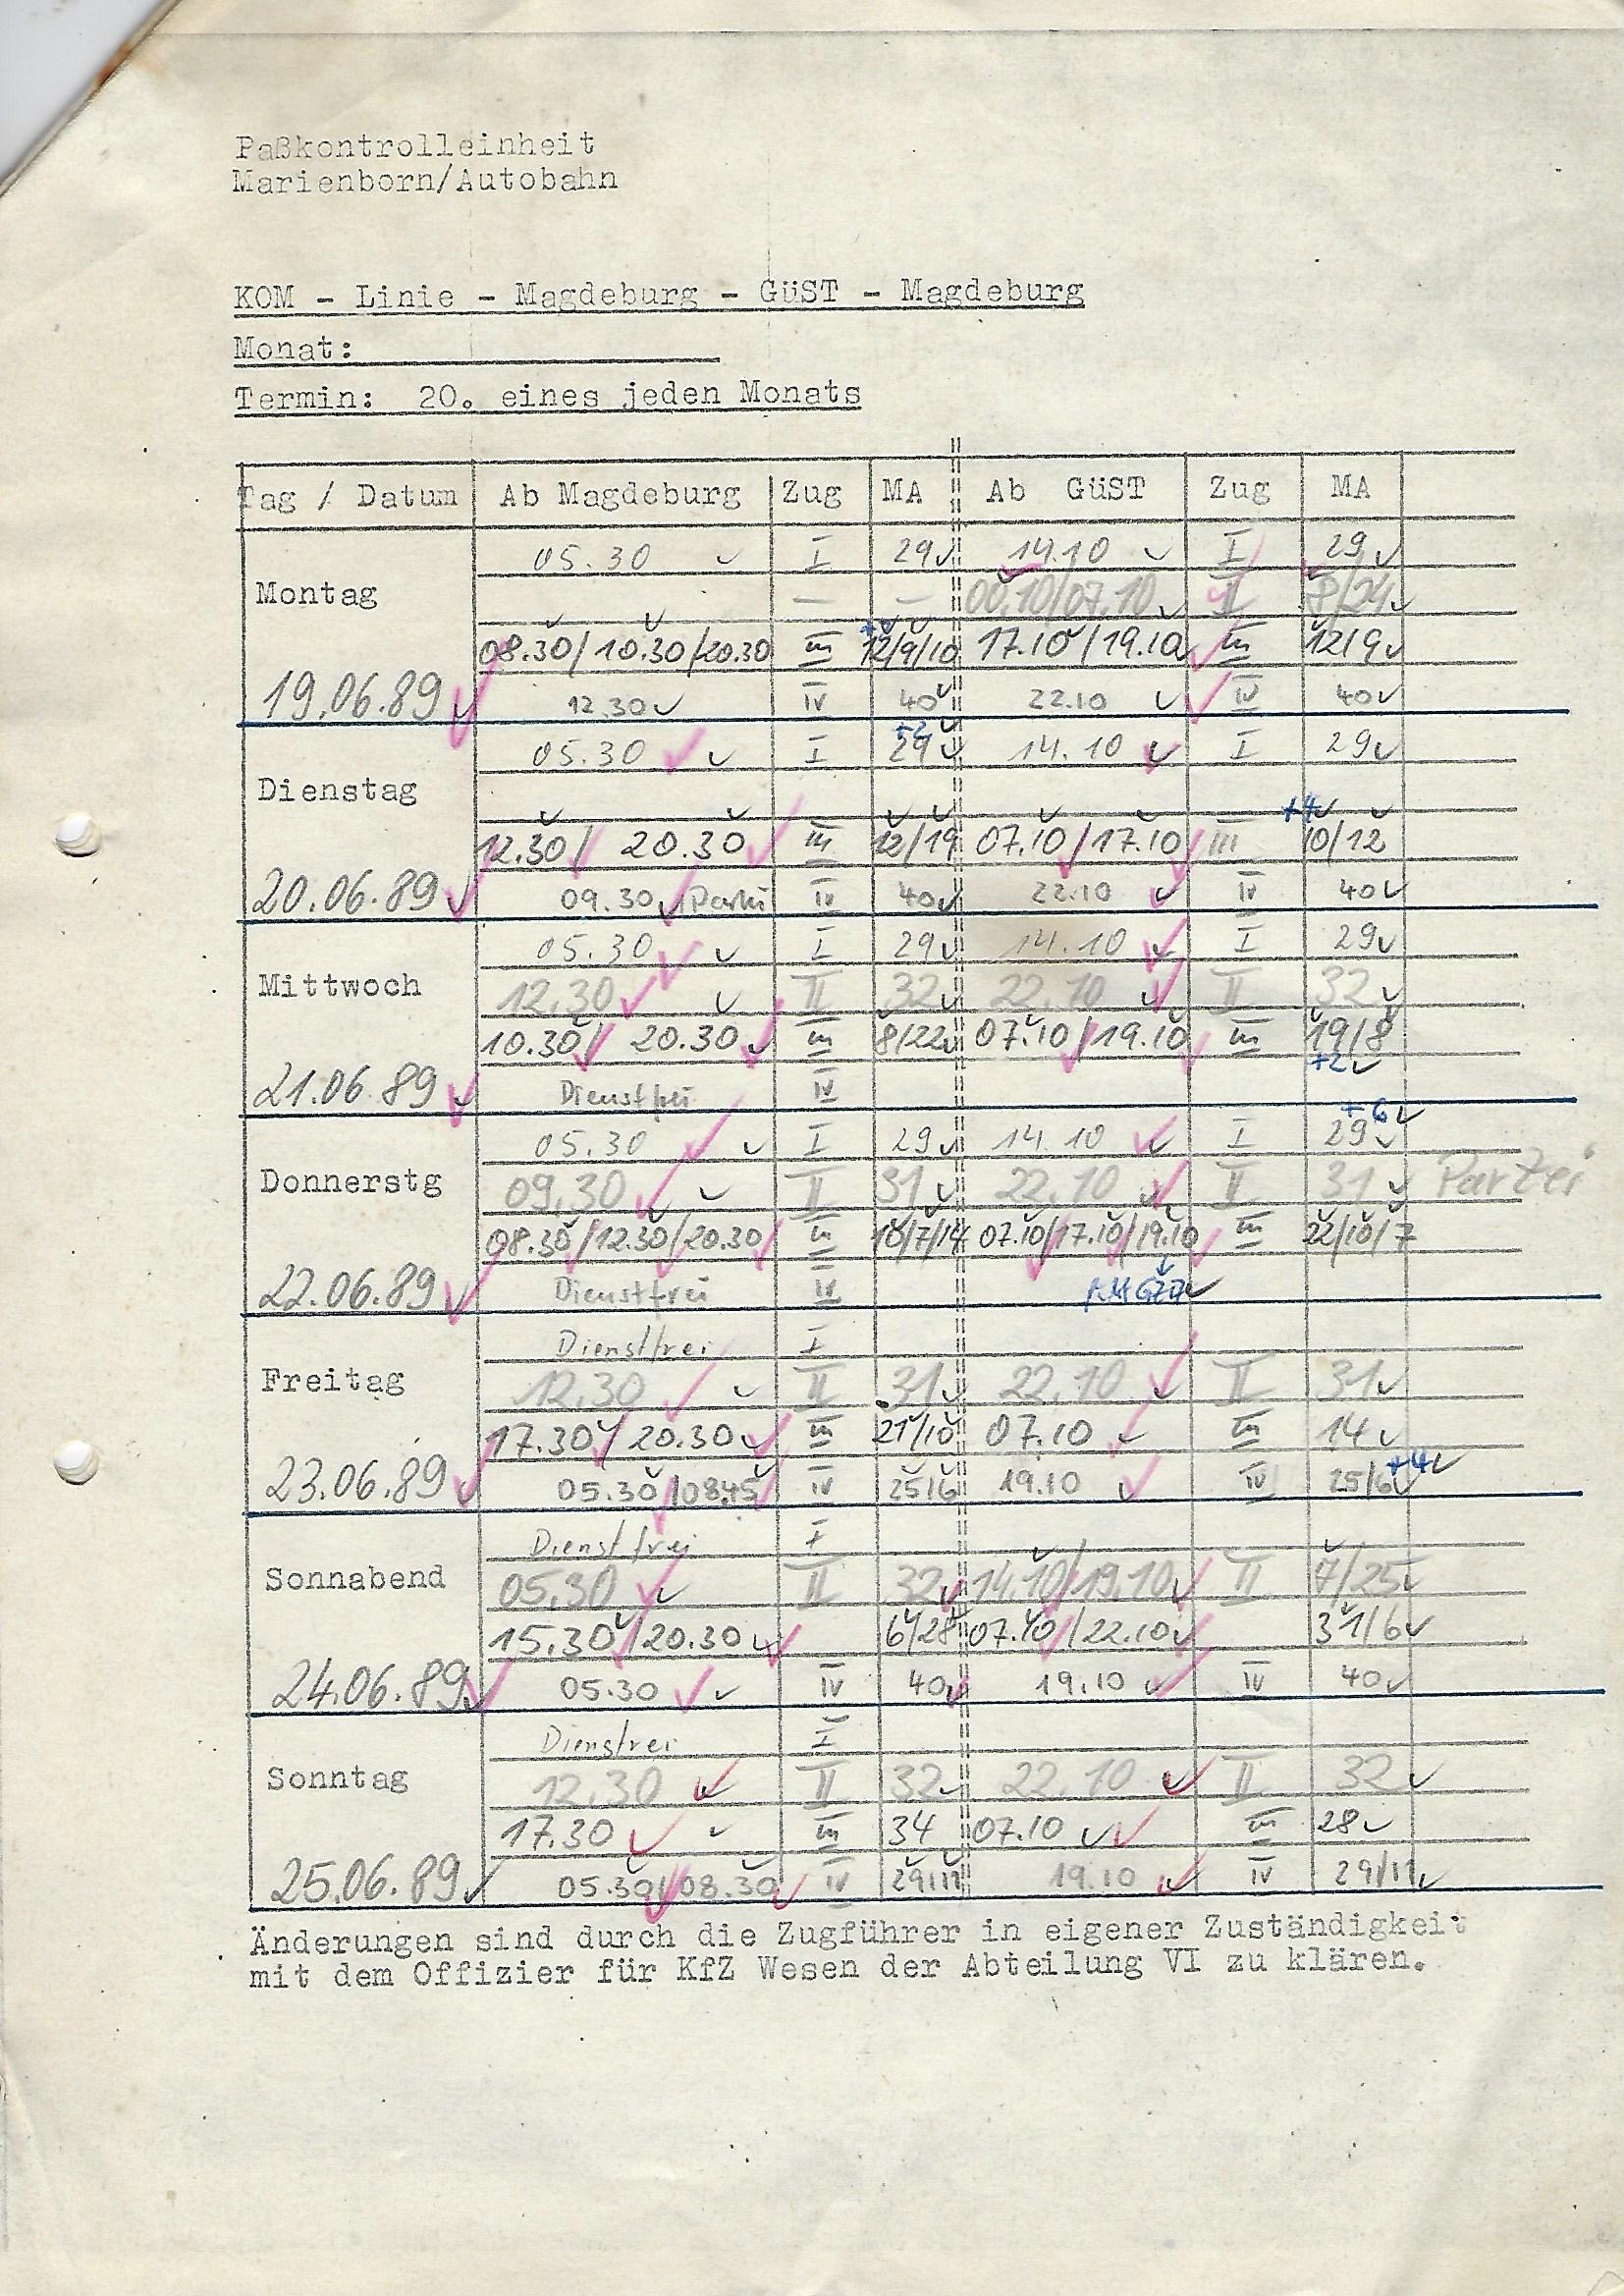 Paßkontrolleinheit
Marienborn/Autobahn
KOM - Linie - Magdeburg - GüST - Magdeburg
Monat:
Termin: 20. eines jeden Monats
Tag / Datum Ab Magdeburg Zug MA Ab GüST Zug MA
05.30 I 29 14.10 I 29
Montag — — 00.10/07.10 II 8/24
08.30/10.30/20.30 III 12/9/10 17.10/19.10 III 12/9
19.06.89 12.30 IV 40 22.10 IV 40
+2
05.30 I 29 14.10 I 29
Dienstag
+4
12.30/ 20.30 III 12/19 07.10/17.10 III 10/12
20.06.89 09.30 IV 40 22.10 IV 40
05.30 I 29 14.10 I 29
Mittwoch 12.30 II 32 22.10 II 32
10.30/ 20.30 III 8/22 07.10/19.10 III 19/8
+2
21.06.89 Dienstfrei IV
+6
05.30 I 29 14.10 I 29
Donnerstg 09.30 II 31 22.10 II 31 Partei
08.30/12.30/20.30 III 10/7/14 07.10/17.10/19.10 III 22/10/7
22.06.89 Dienstfrei IV
Dienstfrei I
Freitag 12.30 II 31 22.10 II 31
17.30/20.30 III 21/10 07.10 III 14
+4
23.06.89 05.30/08.45 IV 25/6 19.10 IV 25/6
Dienstfrei I
Sonnabend 05.30 II 32 14.10/19.10 II 7/25
15.30/20.30 6/28 07.10/22.10 31/6
24.06.89 05.30 IV 40 19.10 IV 40
Dienstrei I
Sonntag 12.30 II 32 22.10 II 32
17.30 III 34 07.10 III 28
25.06.89 05.30/08.30 IV 29/11 19.10 IV 29/11
Änderungen sind durch die Zugführer in eigener Zuständigkeit
mit dem Offizier für KfZ Wesen der Abteilung VI zu klären.